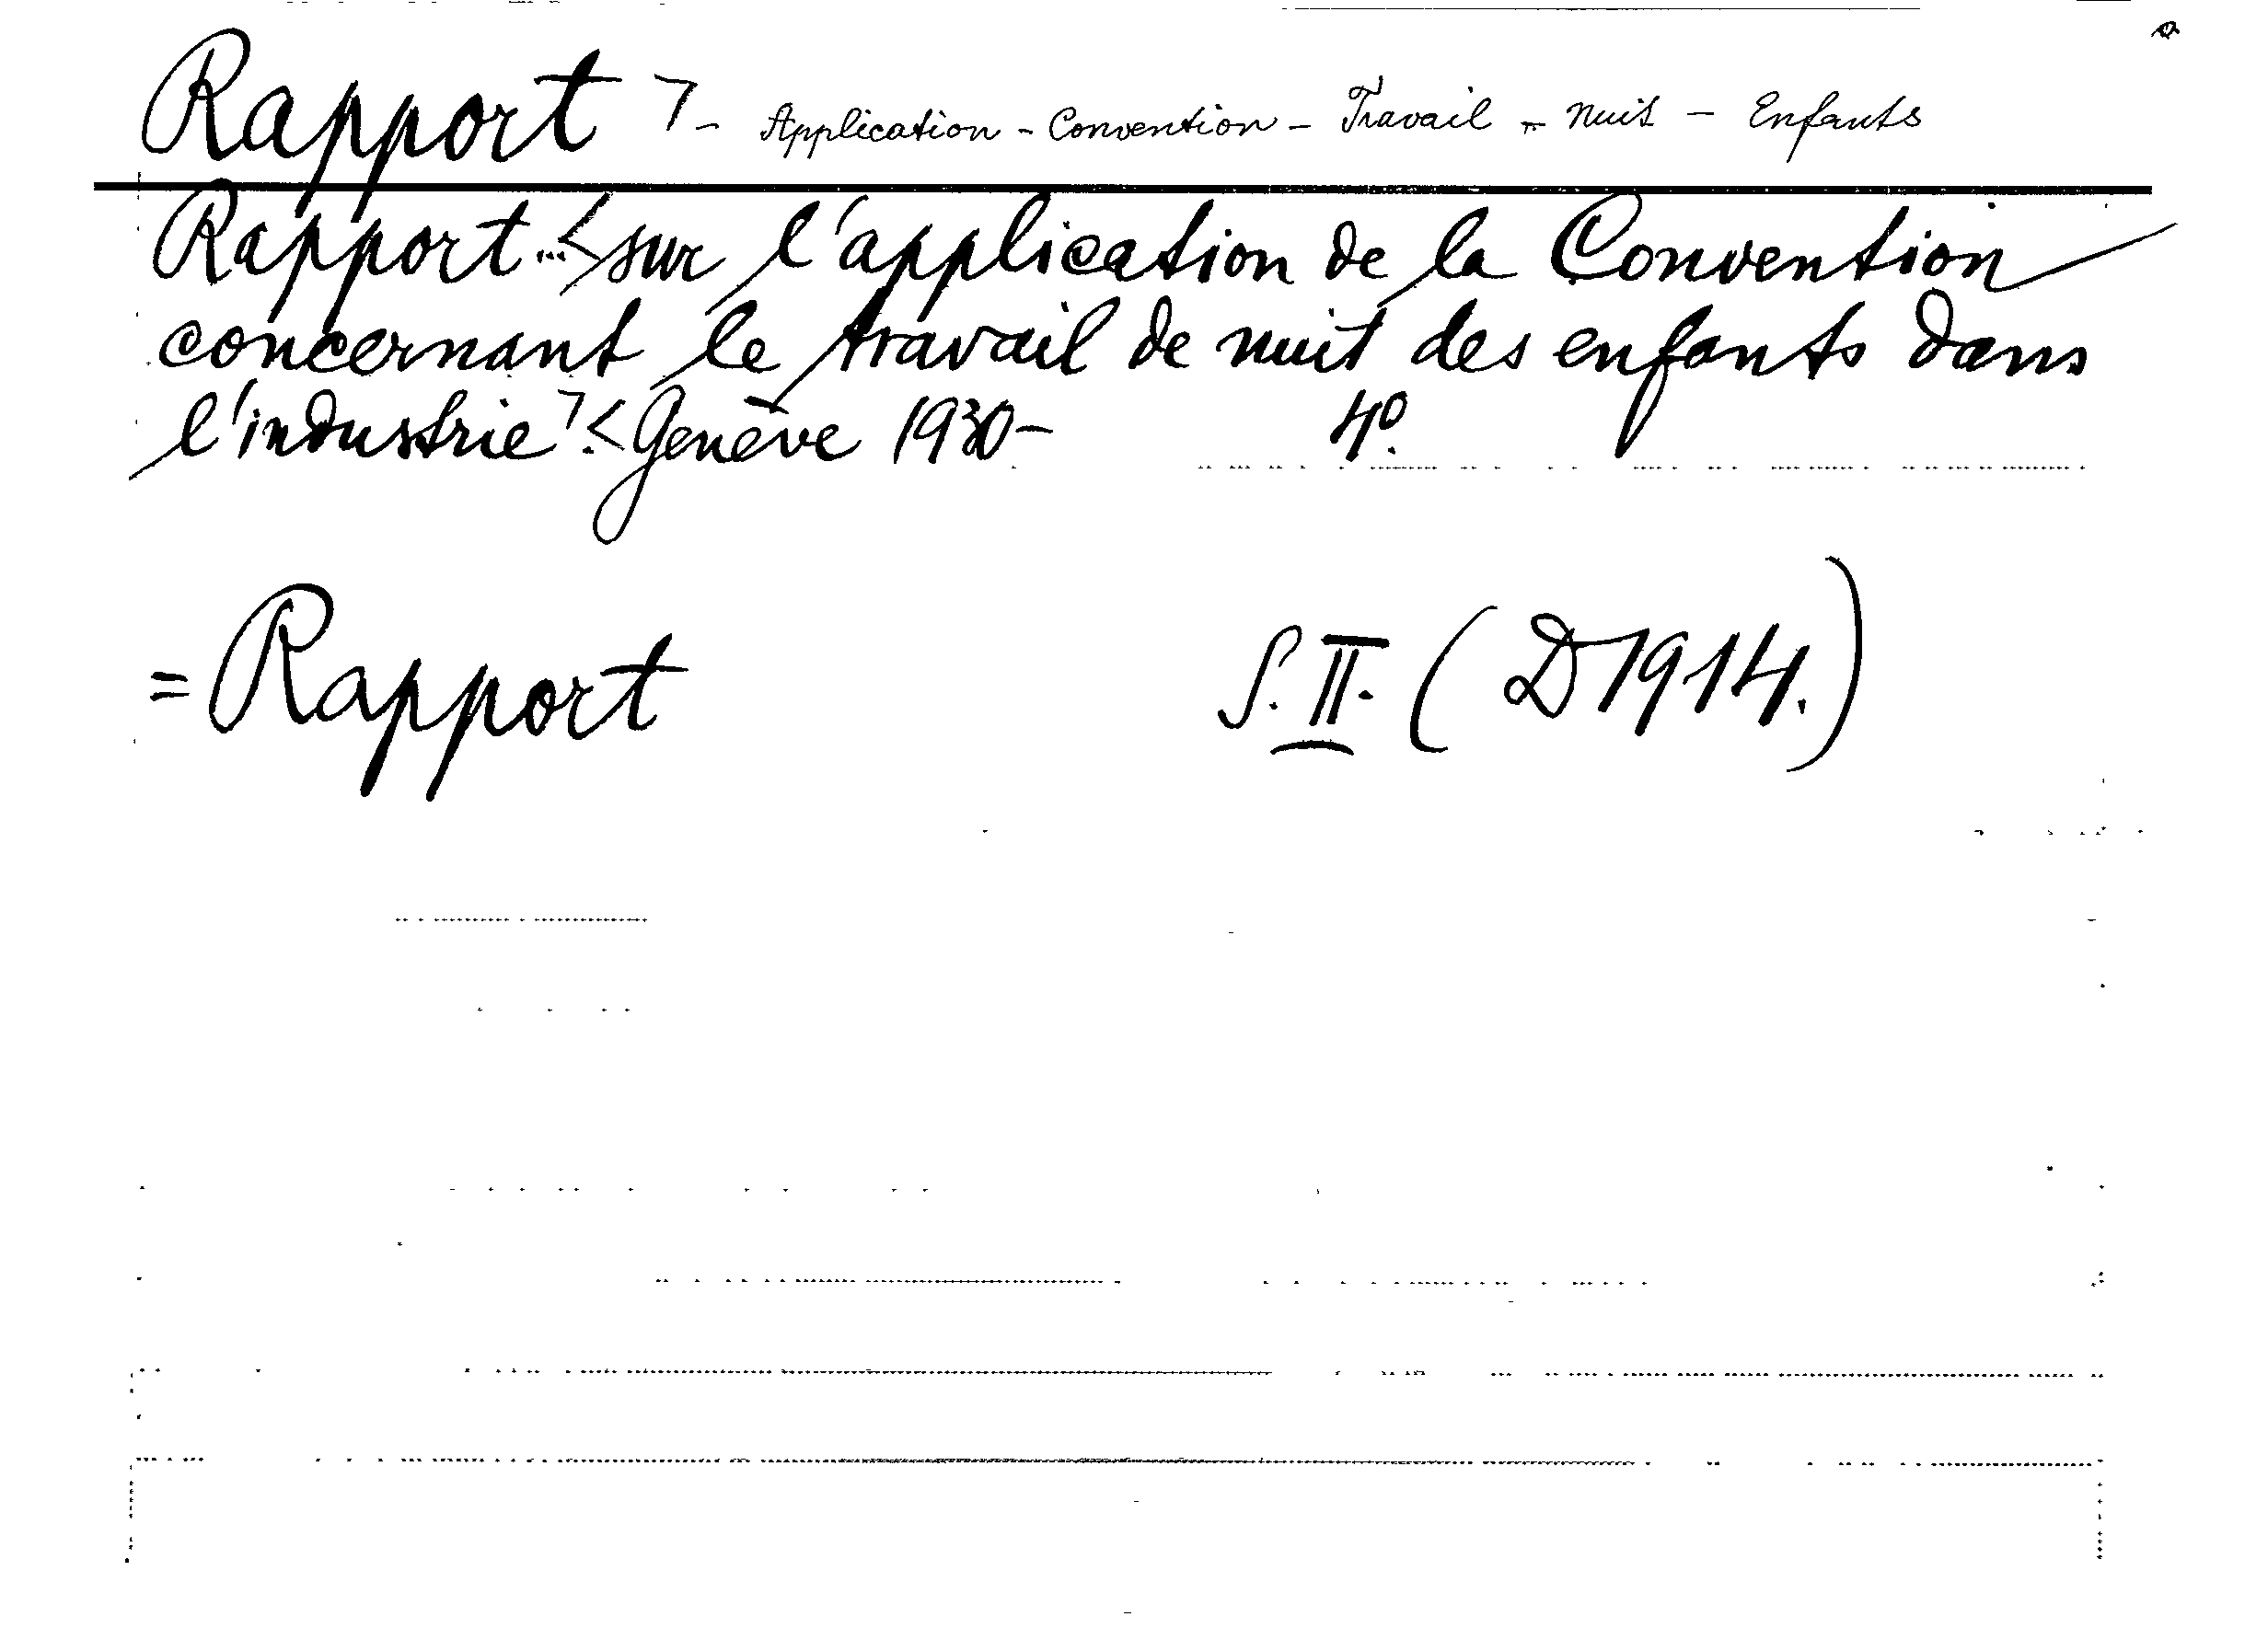 Rapport ⁊ - Application - Convention - Travail - Nuit - Enfants
Rapport...< sur l'application de la Convention
concernant le travail de nuit des enfants dans
l'industrie ⁊.< Genève 1930- 4º.
= Rapport S. II. ( D 1914.)